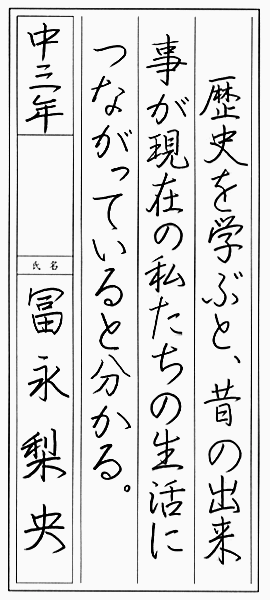 歴史を学ぶと、昔の出来
事が現在の私たちの生活に
つながっていると分かる。
中三年
氏名
冨永梨央